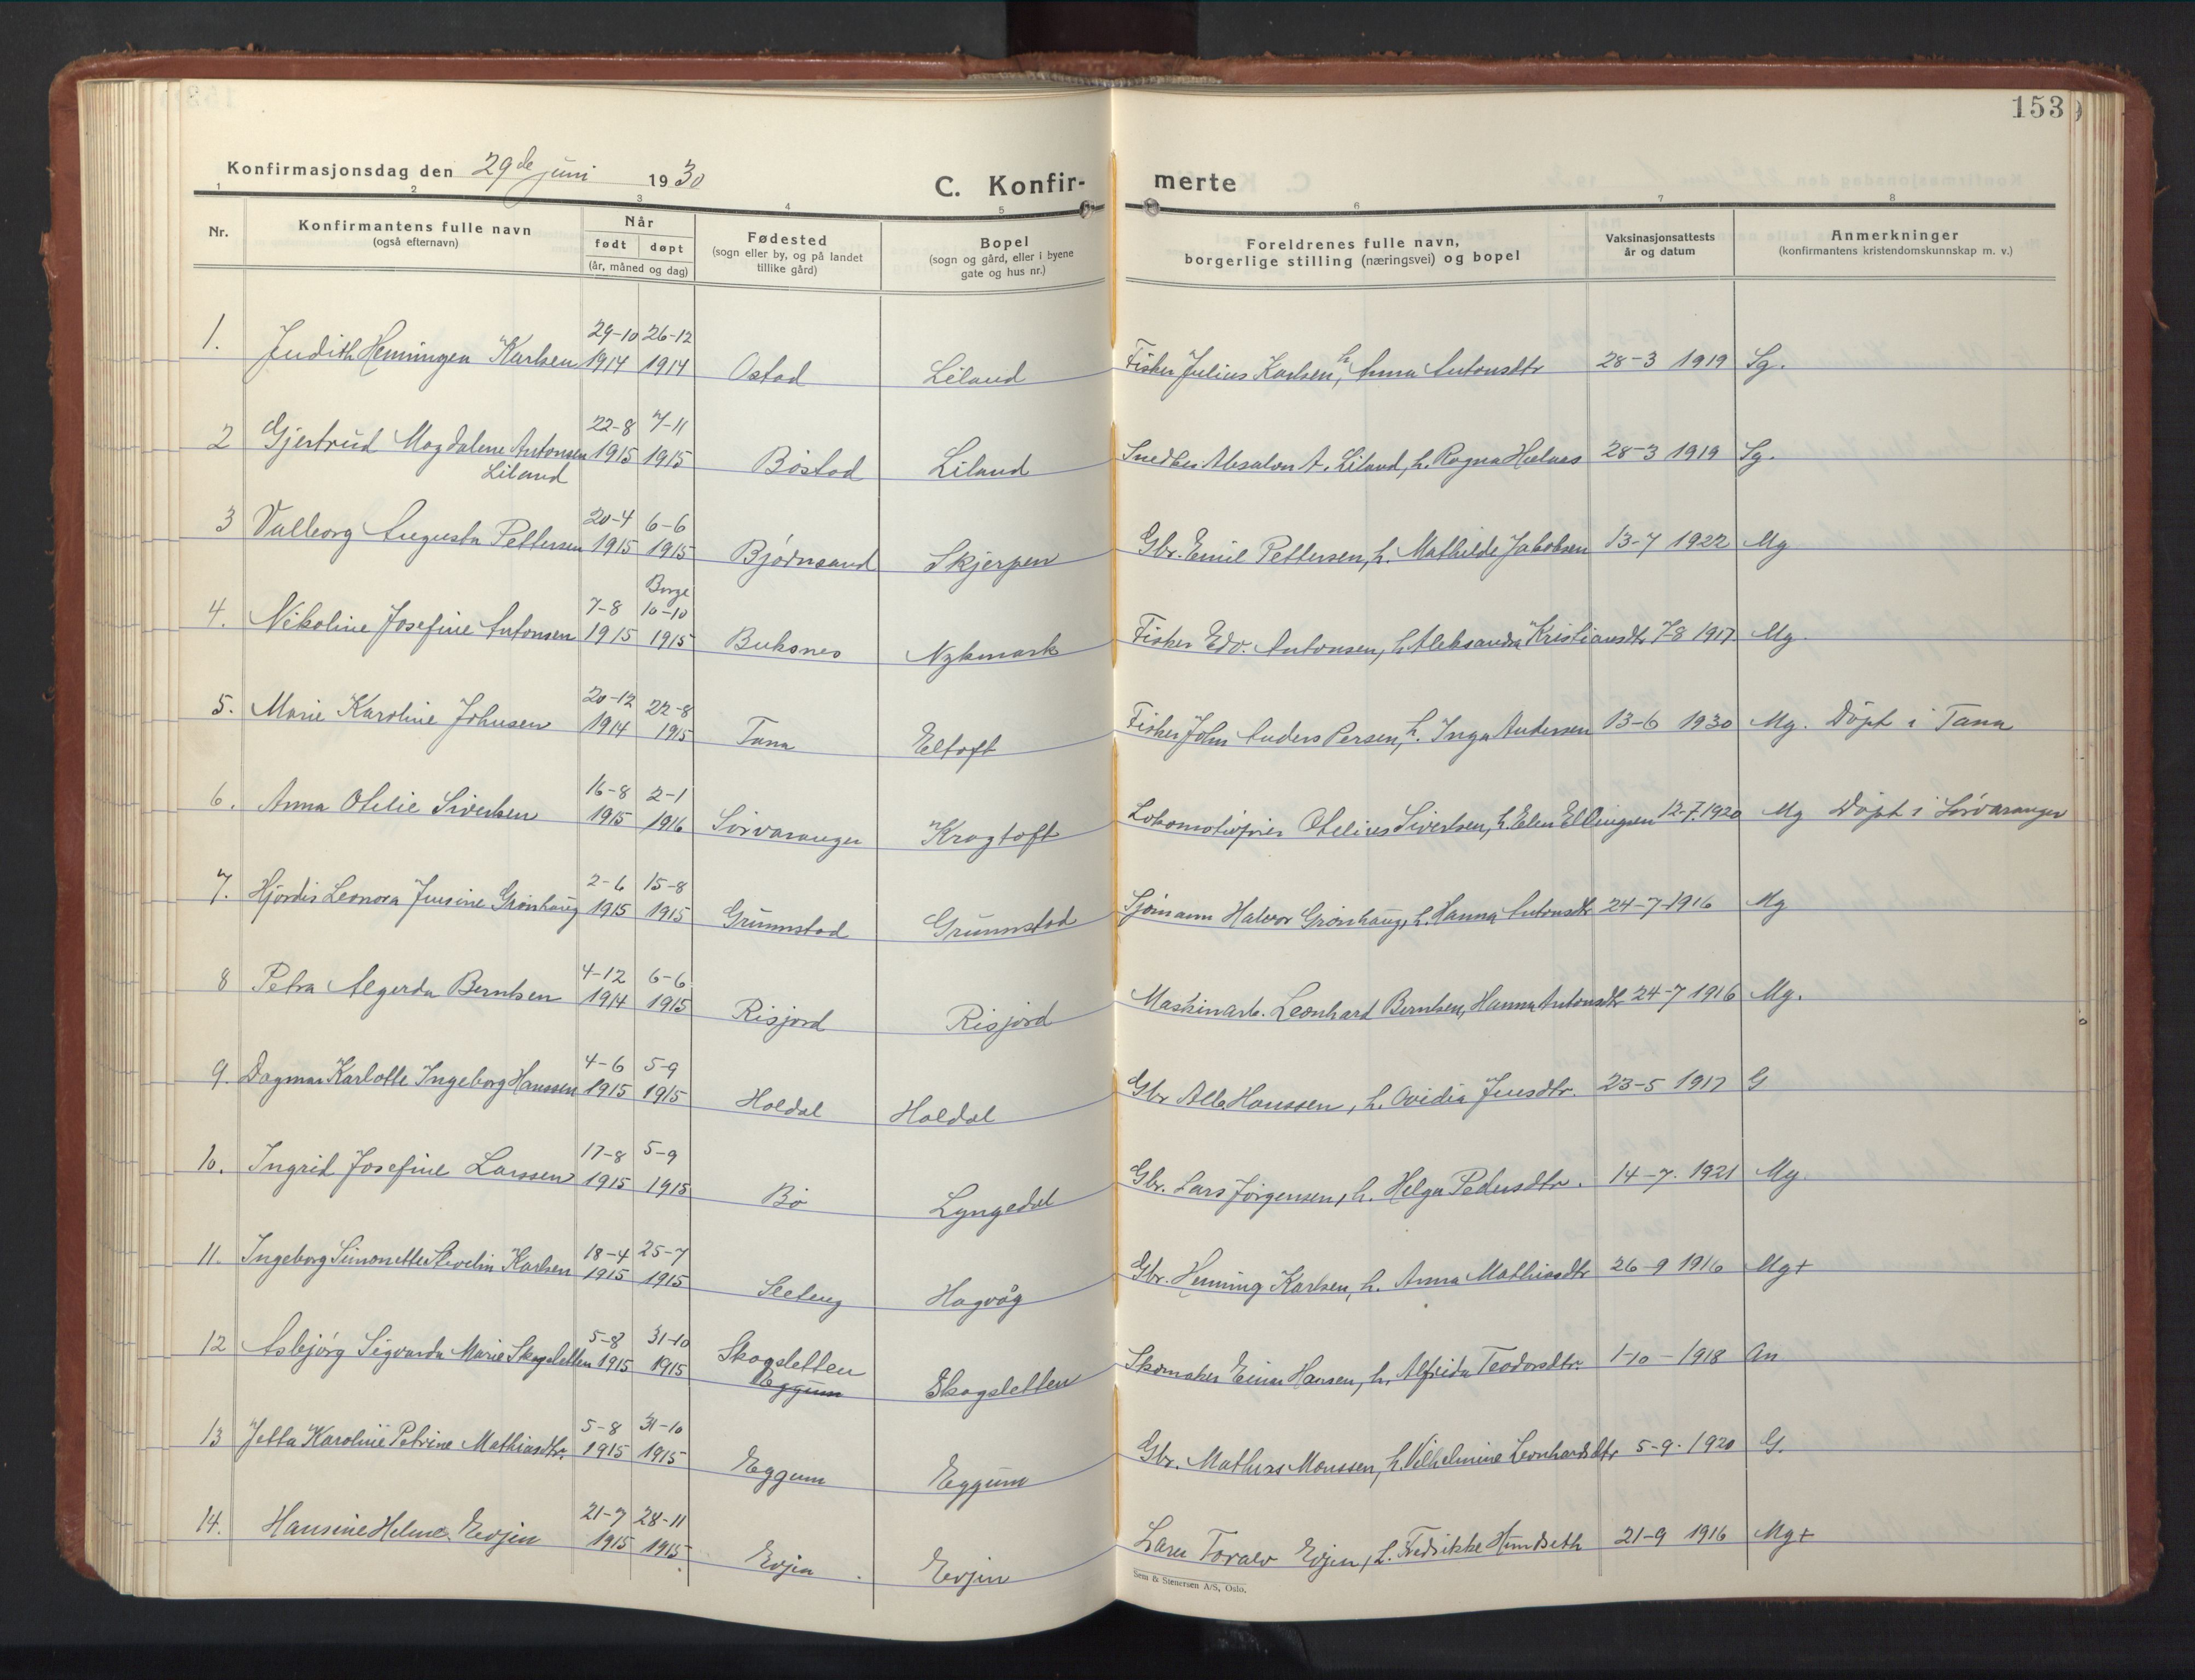 153
Konfirmasjonsdag den 29de juni 1930
C. Konfir- merte
1 2 3 4 5 6 7 8
Nr.
Konfirmantens fulle navn
(også efternavn)
Når
født døpt
(år, måned og dag)
Fødested
(sogn eller by, og på landet
tillike gård)
Bopel
(sogn og gård, eller i byene
gate og hus nr.)
Foreldrenes fulle navn,
borgerlige stilling (næringsvei) og bopel
Vaksinasjonsattests
år og datum
Anmerkninger
(konfirmantens kristendomskunnskap m. v.)
29-10 26-12
1. Judith Henningea Karlsen 1914 1914 Ostad Liland Fisker Julius Karlsen, h. Anna Antonsdtr 28-3 1919 Sg.
22-8 7-11
2 Gjertrud Magdalene Antonsen 1915 1915 Böstad Liland Snedker Absalon A. Liland, h. Ragna 28-3 1919 Sg.
Liland
20-4 6-6
3 Valborg Augusta Pettersen 1915 1915 Bjørnsand Skjerpen Gbr. Emil Pettersen, h. Mathilde Jakobsen 13-7 1922 Mg
Borge
7-8 10-10
4. Nikoline Josefine Antonsen 1915 1915 Buksnes Nykmark Fisker Edv. Antonsen, h. Aleksandra Kristiansdtr 7-8 1917 Mg.
20-12 22-8
5. Marie Karoline Johnsen 1914 1915 Tana Eltoft Fisker John Anders Persen, h. Inga Andersen 13-6 1930 Mg. Döpt i Tana
16-8 2-1
6. Anna Otelie Sivertsen 1915 1916 Sörvaranger Kragtoft Otelius Sivertsen, h. Elen Ellingsen 12-7.1920 Mg Döpt i Sörvaranger
2-6 15-8
7. Hjördis Leonora Jensine Grönhaug 1915 1915 Grunnstad Grunnstad Sjömann Halvor Grönhaug, h. Hanna Antonsdtr 24-7-1916 Mg
4-12 6-6
8 Petra Algerda Berntsen 1914 1915 Risjord Risjord Maskinarb. Leonhard Berntsen, Hanna Antonsdtr 24-7 1916 Mg.
4-6 5-9
9. Dagmar Karlotte Ingeborg Hanssen 1915 1915 Holdal Holdal Gbr Hanssen, h. Ovidia Jensdtr. 23-5 1917 G
17-8 5-9
10. Ingrid Josefine Larssen 1915 1915 Bö Lyngedal Gbr. Lars Jörgensen, h. Helga Pedersdtr. 14-7. 1921 Mg.
18-4 25-7
11. Ingeborg Simonette Karlsen 1915 1915 Hagvåg Gbr. Henning Karlsen, h. Anna Mathiasdtr 26-9 1916 Mg+
5-8 31-10
12 Asbjörg Sigvarda Marie Skogsletten 1915 1915 Skogsletten Skogsletten Skomaker Einar Hansen, h. Alfrida Teodorsdtr. 1-10-1918 An
Eggum
5-8 31-10
13 Jetta Karoline Petrine Mathiasdtr. 1915 1915 Eggum Eggum Gbr. Mathias Monssen, h. Vilhelmine Leonhardsdtr 5-9-1920 G.
21-7 28-11
14. Hansine Helene Evjen 1915 1915 Evjen Evjen Toralv Evjen, h. Fredrikke Hundseth 21-9 1916 Mg+
Sem & Stenersen A/S, Oslo.